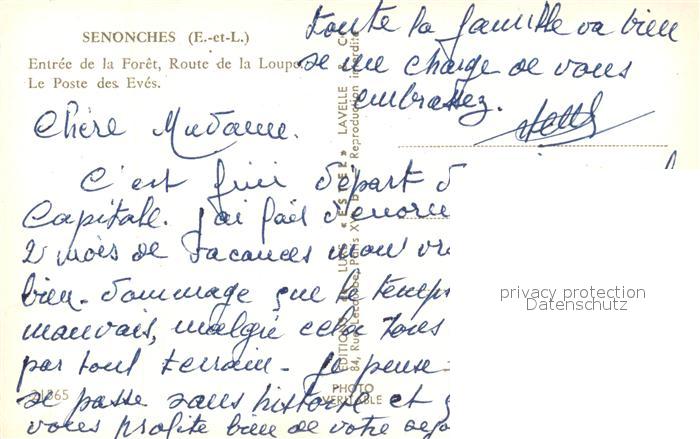 SENONCHES (E.-et-L.)
Entrée de la Forêt, Route de la Loupe.
Le Poste des Evés.
toute la famille va bien
se me charge de vous
embrassez.
Chère Madame.
C'est fini départ d
Capitale. j'ai fais d'enorm
2 mois de vacances mon
bien. dommage que le temps
mauvais, malgré cela tous
par tout terrain. je pense
se passe sans histoire et
vous profite bien de votre
21865
EDITION DE LUXE « ESTEL » LAVELLE
84, Rue Lecourbe, Paris XVe Reproduction interdite
PHOTO
VERITABLE
privacy protection
Datenschutz